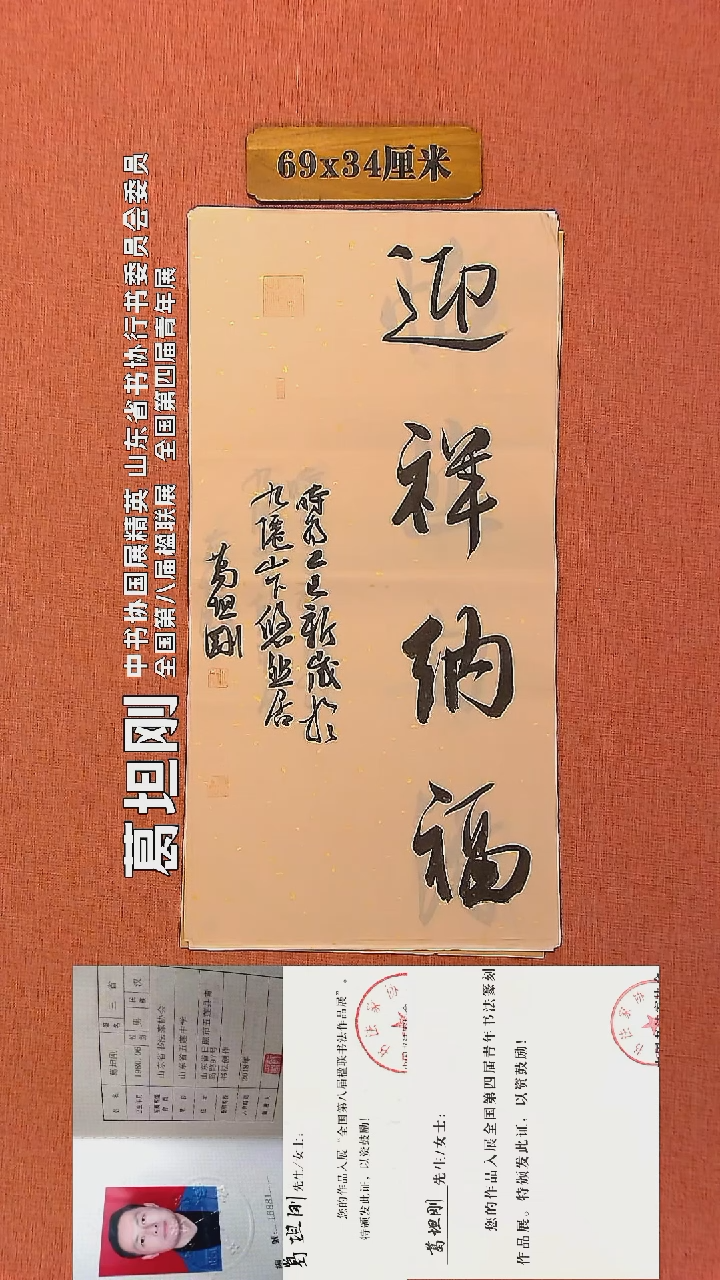 69x34厘米
迎祥纳福
時为乙巳新歲於
九僊山下悠然居
葛坦刚
葛坦刚
中书协国展精英 山东省书协行书委员会委员
全国第八届楹联展 全国第四届青年展
葛坦刚 先生/女士:
您的作品入展“全国第八届楹联书法作品展”。
特颁发此证,以资鼓励!
葛坦刚 先生/女士:
您的作品入展全国第四届青年书法篆刻
作品展。特颁发此证,以资鼓励!
山东省书法家协会
山东省五莲中学
书法创作